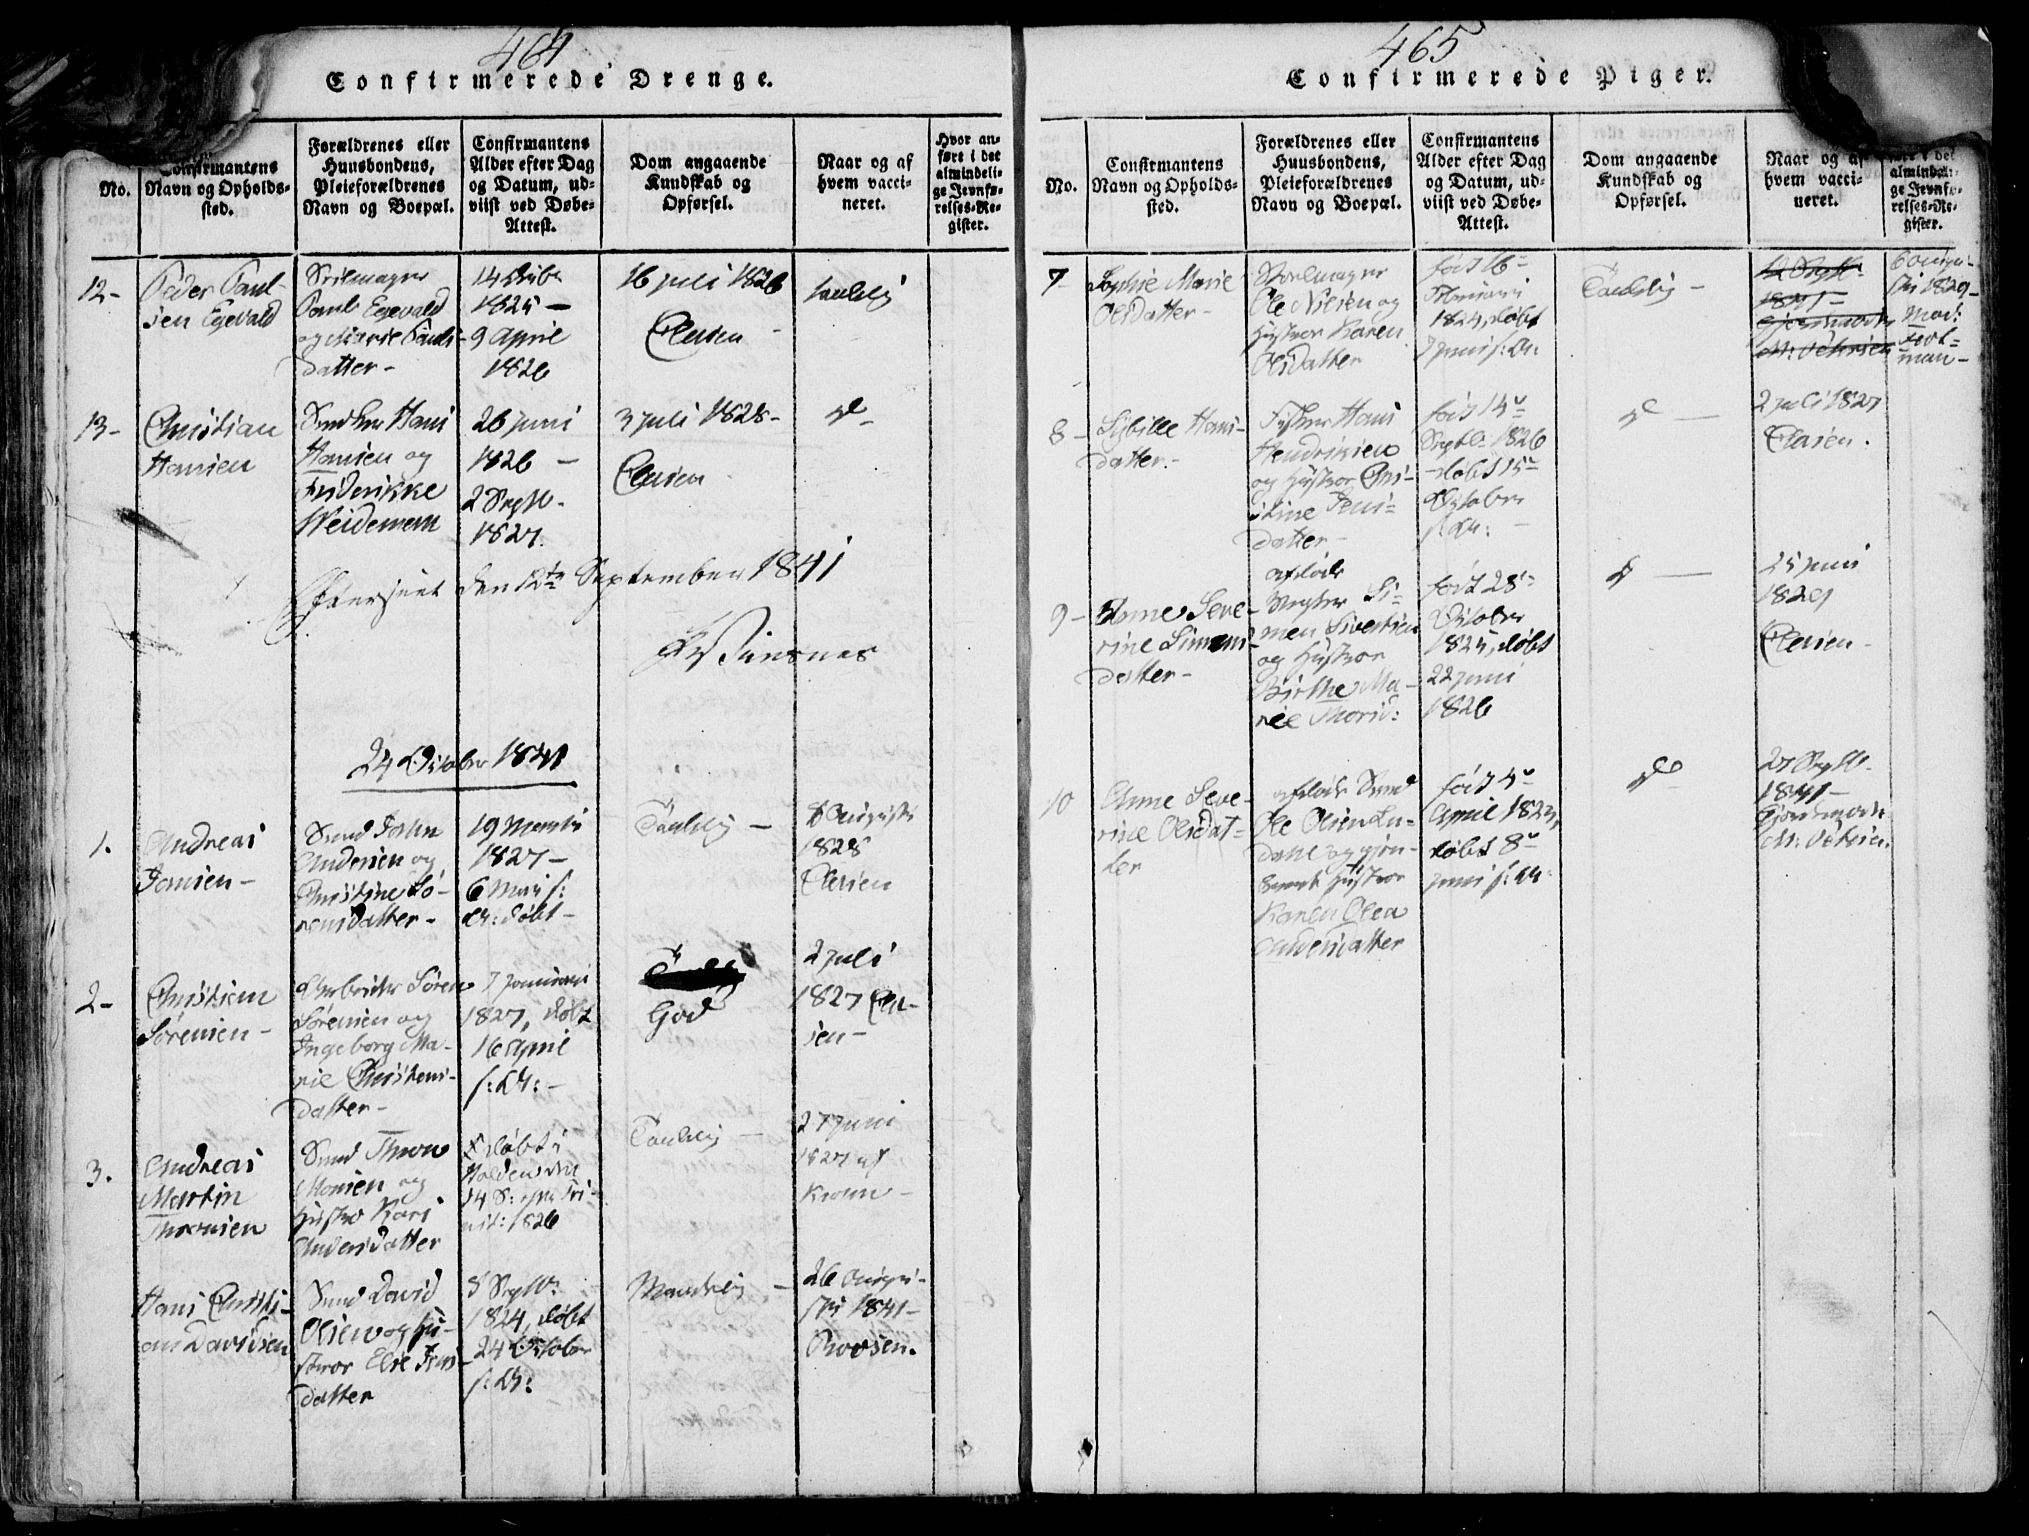 464
Confirmerede Drenge.
No.
Confirmantens
Navn og Opholds-
sted.
Forældrenes eller
Huusbondens,
Pleieforældrenes
Navn og Boepæl.
Confirmantens
Alder efter Dag
og Datum, ud-
viist ved Døbe-
Attest.
Dom angaaende
Kundskab og
Opførsel.
Naar og af
hvem vacci-
neret.
Hvor an-
ført i det
almindeli-
ge Jevnfø-
relses-Re-
gister.
12-
Peder Paul-
sen Egevald
Paul Egevald
og Marie Pauls-
datter-
1825 -
9 April
1826
16 juli 1826
Claisen
taalelig
13-
Christian
Hansen
Hans
Hansen og
Friderikke
Weidemann
26 juni
1826 -
2 Septbr.
1827.
3 juli 1828-
Claisen
do-
Efterseet den 12te September 1841
24 October 1841
1.
Andreas
Jansen -
Smed John
Andersen og
Christine Sø-
rensdatter -
19 Martii
1827 -
6 Mai s:
A: døbt -
Taalelig -
8 Augusti
1828
Claisen
2-
Christian
Sørensen -
Arbeider Søren
Sørensen og
Ingeborg Ma-
rie Christens-
datter -
7 Januari
1827, døbt
16 April
s: A: -
God
2 Juli
1827 Clai-
sen -
3.
Andreas
Martin
Thronsen
Smed Thron
Hansen og
Hustro Kari
Andersdatter
døbt i
Holden den
14 S: p: Tri-
nit: 1826
Taalelig -
27 juni
1827 af
Krohn -
Hans Christi-
an Davidsen
Smed David
Olsen og Hu-
stroe Else Jens-
datter
5 Septbr:
1824, døbt
24 October
s: A:
Maadelig -
26 Augu-
sti 1841 -
Rovsen.
465
Confirmerede Piger.
No.
Confirmantens
Navn og Opholds-
sted.
Forældrenes eller
Huusbondens,
Pleieforældrenes
Navn og Boepæl.
Confirmantens
Alder efter Dag
og Datum, ud-
viist ved Døbe-
Attest.
Dom angaaende
Kundskab og
Opførsel.
Naar og af
hvem vacci-
neret.
ført i det
almindeli-
ge Jevnfø-
relses-Re-
gister.
7-
Sophie Marie
Olsdatter -
Ole Nilsen og
Hustroe Karen
Olsdatter
født 16
Februari
1824, døbt
7 Juni s: A:
Taalelig -
6 Augu-
sti 1829 -
8 -
Sybille Hans-
datter.
Fisker Hans
Hendriksen
og Hustroe Chri-
stine Jens-
datter -
født 14
Septbr. 1826
- døbt 15
October
s: A: -
do -
2 juli 1827
Claisen.
9 -
Anne Seve-
rine Simens-
datter -
afdøde
Si-
men Sivertsen
og Hustroe
Birthe Ma-
rie Thorsd:
født 28
October
1825, døbt
22 juni
1826
do -
25 juni
1829
Claisen -
10
Anne Seve-
rine Olsdat-
ter
afdøde Smed
Ole Olsen Lu-
dahl og gjen-
levende Hustroe
Karen Olea
Andersdatter
født 4
April 1823,
døbt 8
juni s: A:
do -
27 Septbr.
1841 -
Gjordemoder
M: Petersen.